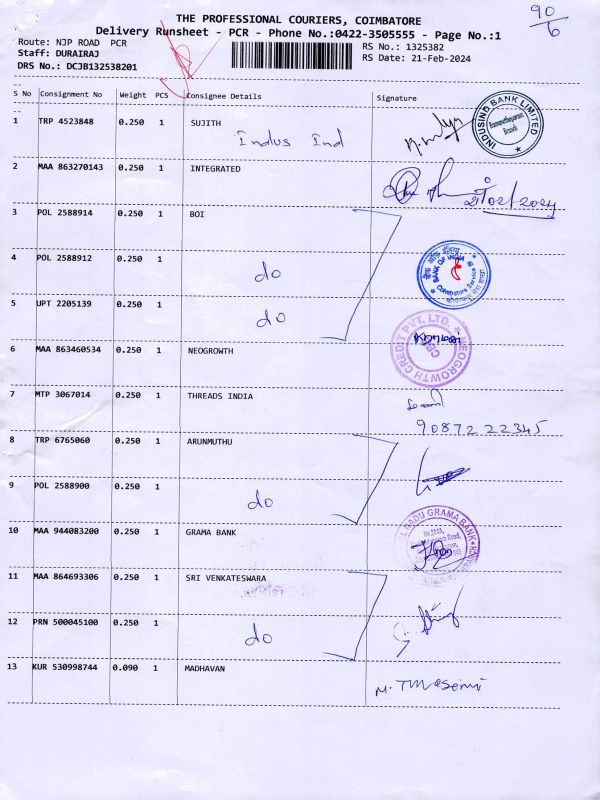 THE PROFESSIONAL COURIERS, COIMBATORE
90/6
Delivery Runsheet - PCR - Phone No.:0422-3505555 - Page No.:1
Route: NJP ROAD PCR
RS No.: 1325382
Staff: DURAIRAJ
RS Date: 21-Feb-2024
DRS No.: DCJB132538201
S No Consignment No Weight PCS Consignee Details Signature
1 TRP 4523848 0.250 1 SUJITH
Indus Ind
INDUSIND BANK LIMITED
Branch
2 MAA 863270143 0.250 1 INTEGRATED
21/02/2024
3 POL 2588914 0.250 1 BOI
4 POL 2588912 0.250 1
do
BANK OF INDIA
Coimbatore Service
5 UPT 2205139 0.250 1
do
NEOGROWTH CREDIT PVT. LTD.
CBO
6 MAA 863460534 0.250 1 NEOGROWTH
7 MTP 3067014 0.250 1 THREADS INDIA
90872 22345
8 TRP 6765060 0.250 1 ARUNMUTHU
9 POL 2588900 0.250 1
do
10 MAA 944083200 0.250 1 GRAMA BANK
NADU GRAMA BANK
11 MAA 864693306 0.250 1 SRI VENKATESWARA
12 PRN 500045100 0.250 1
do
13 KUR 530998744 0.090 1 MADHAVAN